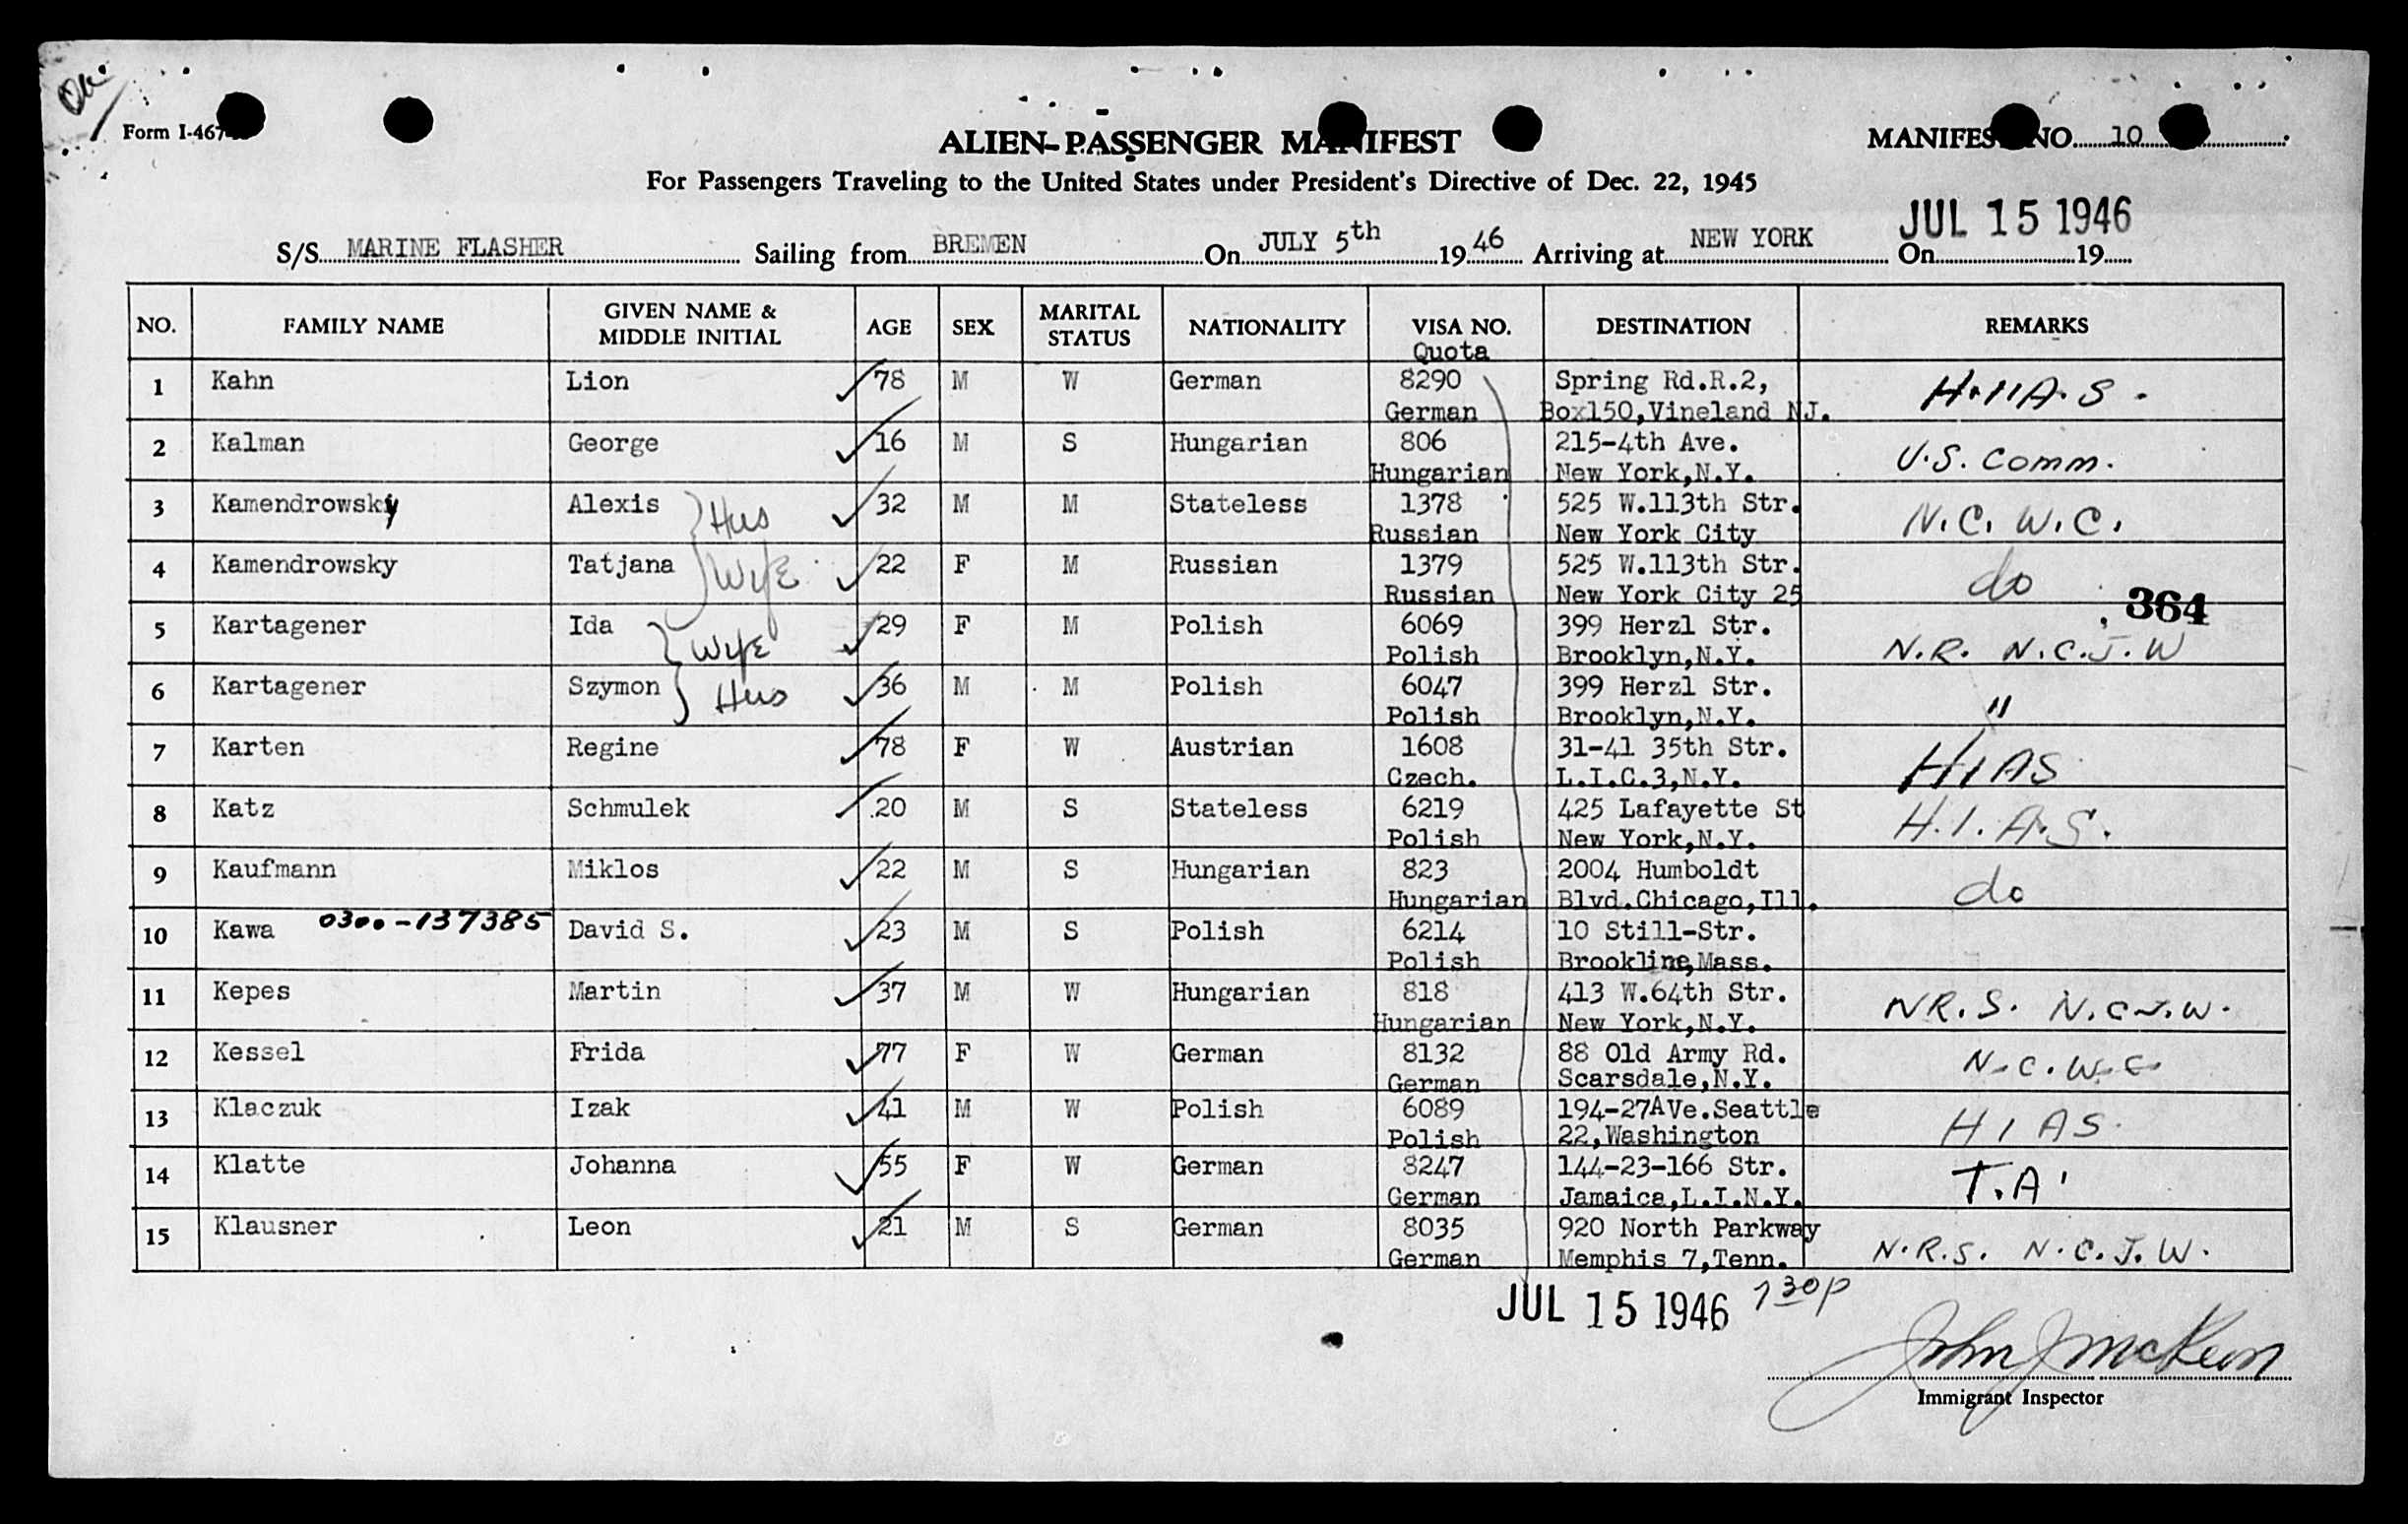 Ok.
Form I-467
ALIEN-PASSENGER MANIFEST
MANIFEST NO. 10
For Passengers Traveling to the United States under President's Directive of Dec. 22, 1945
JUL 15 1946
S/S MARINE FLASHER Sailing from BREMEN On JULY 5th 1946 Arriving at NEW YORK On 19
NO. FAMILY NAME GIVEN NAME & MIDDLE INITIAL AGE SEX MARITAL STATUS NATIONALITY VISA NO. Quota DESTINATION REMARKS
1 Kahn Lion 78 M W German 8290 Spring Rd.R.2, H.I.A.S.
German Box150,Vineland NJ.
2 Kalman George 16 M S Hungarian 806 215-4th Ave. U.S. Comm.
Hungarian New York,N.Y.
3 Kamendrowsky Alexis Hus 32 M M Stateless 1378 525 W.113th Str. N.C.W.C.
Russian New York City
4 Kamendrowsky Tatjana Wife 22 F M Russian 1379 525 W.113th Str. do
Russian New York City 25
364
5 Kartagener Ida Wife 29 F M Polish 6069 399 Herzl Str. N.R. N.C.J.W
Polish Brooklyn,N.Y.
6 Kartagener Szymon Hus 36 M M Polish 6047 399 Herzl Str. "
Polish Brooklyn,N.Y.
7 Karten Regine 78 F W Austrian 1608 31-41 35th Str. HIAS
Czech. L.I.C.3,N.Y.
8 Katz Schmulek 20 M S Stateless 6219 425 Lafayette St H.I.A.S.
Polish New York,N.Y.
9 Kaufmann Miklos 22 M S Hungarian 823 2004 Humboldt do
Hungarian Blvd.Chicago,Ill.
10 Kawa 0300-137385 David S. 23 M S Polish 6214 10 Still-Str.
Polish Brookline,Mass.
11 Kepes Martin 37 M W Hungarian 818 413 W.64th Str. NR.S. N.C.J.W.
Hungarian New York,N.Y.
12 Kessel Frida 77 F W German 8132 88 Old Army Rd. N.C.W.C.
German Scarsdale,N.Y.
13 Klaczuk Izak 41 M W Polish 6089 194-27AVe.Seattle HIAS.
Polish 22,Washington
14 Klatte Johanna 55 F W German 8247 144-23-166 Str. T.A.
German Jamaica,L.I.N.Y.
15 Klausner Leon 21 M S German 8035 920 North Parkway N.R.S. N.C.J.W.
German Memphis 7,Tenn.
JUL 15 1946 130p
John J McKeon
Immigrant Inspector